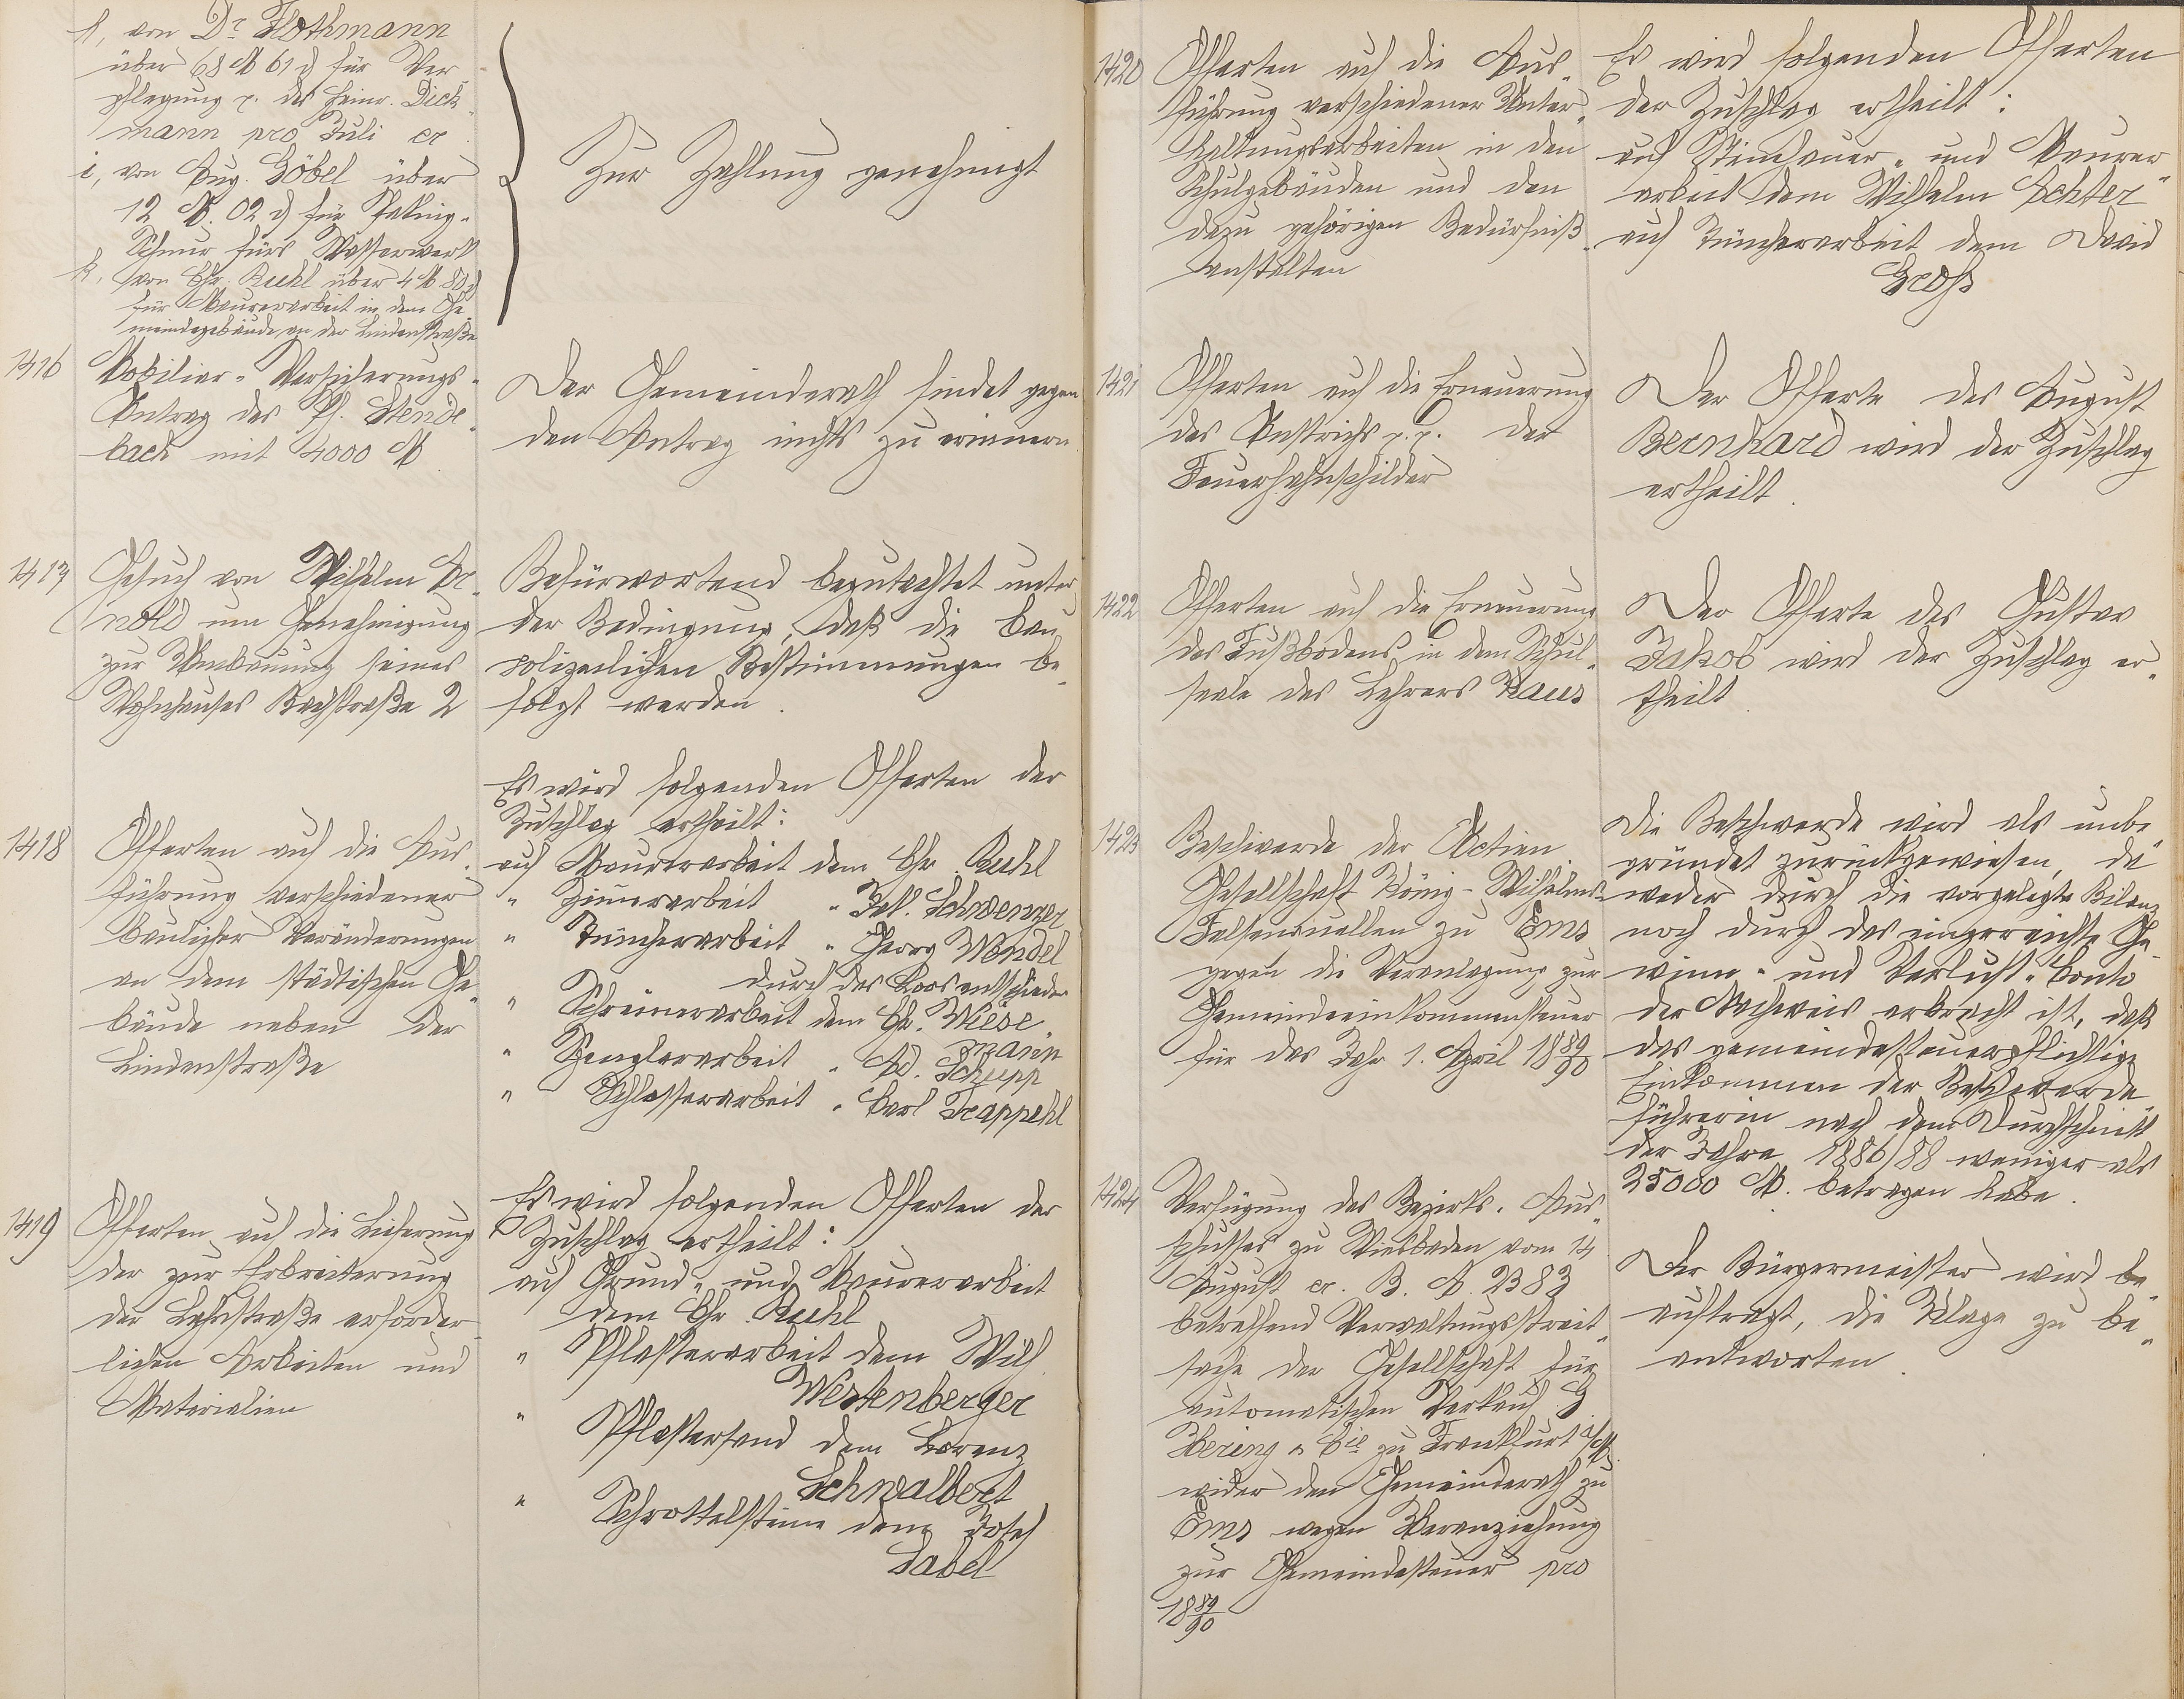 h, von Dr Flothmann
über 68 M 61 d für Ver
pflegung p. des Heinr. Dick
mann pro Juli cr
i, von Aug. Göbel über
12 M. 02 d für Paking-
Schnur fürs Wasserwerk
k, von Chr. Ruhl über 4 M 80 d
für Maurerarbeit in dem Ge
meindegebäude an der Lindenstraße
Zur Zahlung genehmigt
1416
Mobiliar- Versicherungs-
Antrag des Ph. Stende
bach mit 4000 M
Der Gemeinderath findet gegen
den Antrag nichts zu erinnern
1417
Gesuch von Wilhelm Ar-
nold um Genehmigung
zur Umbauung seines
Wohnhauses Bachstraße 2
Befürwortend begutachtet unter
der Bedingung, daß die bau
polizeilichen Bestimmungen be-
folgt werden.
1418
Offerten auf die Aus-
führung verschiedener
baulicher Veränderungen
an dem städtischen Ge-
bäude neben der
Lindenstraße
Es wird folgenden Offerten der
Zuschlag ertheilt:
auf Maurerarbeit dem Chr. Ruhl
" Zimmerarbeit " Jos. Schwenzer
" Tüncherarbeit " Georg Wendel
durch das Loos entschieden
" Schreinerarbeit dem Chr. Wiese-
mann
" Spenglerarbeit " Ad. Schupp
" Schlosserarbeit " Carl Trappehl
1419
Offerten auf die Lieferung
der zur Erbreiterung
der Lahnstraße erforder-
lichen Arbeiten und
Materialien
Es wird folgenden Offerten der
Zuschlag ertheilt:
auf Grund- und Maurerarbeit
dem Chr. Ruhl
" Pflasterarbeit dem Wilh
Westenberger
" Pflastersand dem Lorenz
Schwalbert
" Schrottelsteine dem Josef
Sabel
1420
Offerten auf die Aus-
führung verschiedener Unter-
haltungsarbeiten in den
Schulgebäuden und den
dazu gehörigen Bedürfniß-
anstalten
Es wird folgenden Offerten
der Zuschlag ertheilt:
auf Steinhauer- und Maurer-
arbeit dem Wilhelm Achter
auf Tüncherarbeit dem David
Groß
1421
Offerten auf die Erneuerung
des Anstrichs p.p. der
Feuerhahnschilder
Der Offerte des August
Bernhard wird der Zuschlag
ertheilt.
1422
Offerten auf die Erneuerung
des Fußbodens in dem Schul-
saale des Lehrers Kaus
Der Offerte des Gustav
Jakob wird der Zuschlag er-
theilt.
1423
Beschwerde der Actien
Gesellschaft König-Wilhelms-
Felsenquellen zu Ems
gegen die Veranlagung zur
Gemeindeeinkommensteuer
für das Jahr 1. April 1889/90
Die Beschwerde wird als unbe-
gründet zurückgewiesen, da
weder durch die vorgelegte Bilanz
noch durch das eingereichte Ge-
winn- und Verlust-Conto
der Nachweis erbracht ist, daß
das gemeindesteuerpflichtige
Einkommen der Beschwerde-
führerin nach dem Durchschnitt
der Jahre 1886/88 weniger als
25000 M. betragen habe.
1424
Verfügung des Bezirks-Aus-
schusses zu Wiesbaden vom 14
August cr. B. A. 2383
betreffend Verwaltungsstreit-
sache der Gesellschaft für
automatischen Verkauf G
Hering & Cie zu Frankfurt a/M.
wider den Gemeinderath zu
Ems wegen Heranziehung
zur Gemeindesteuer pro
1889/90
Der Bürgermeister wird be-
auftragt, die Klage zu be-
antworten.